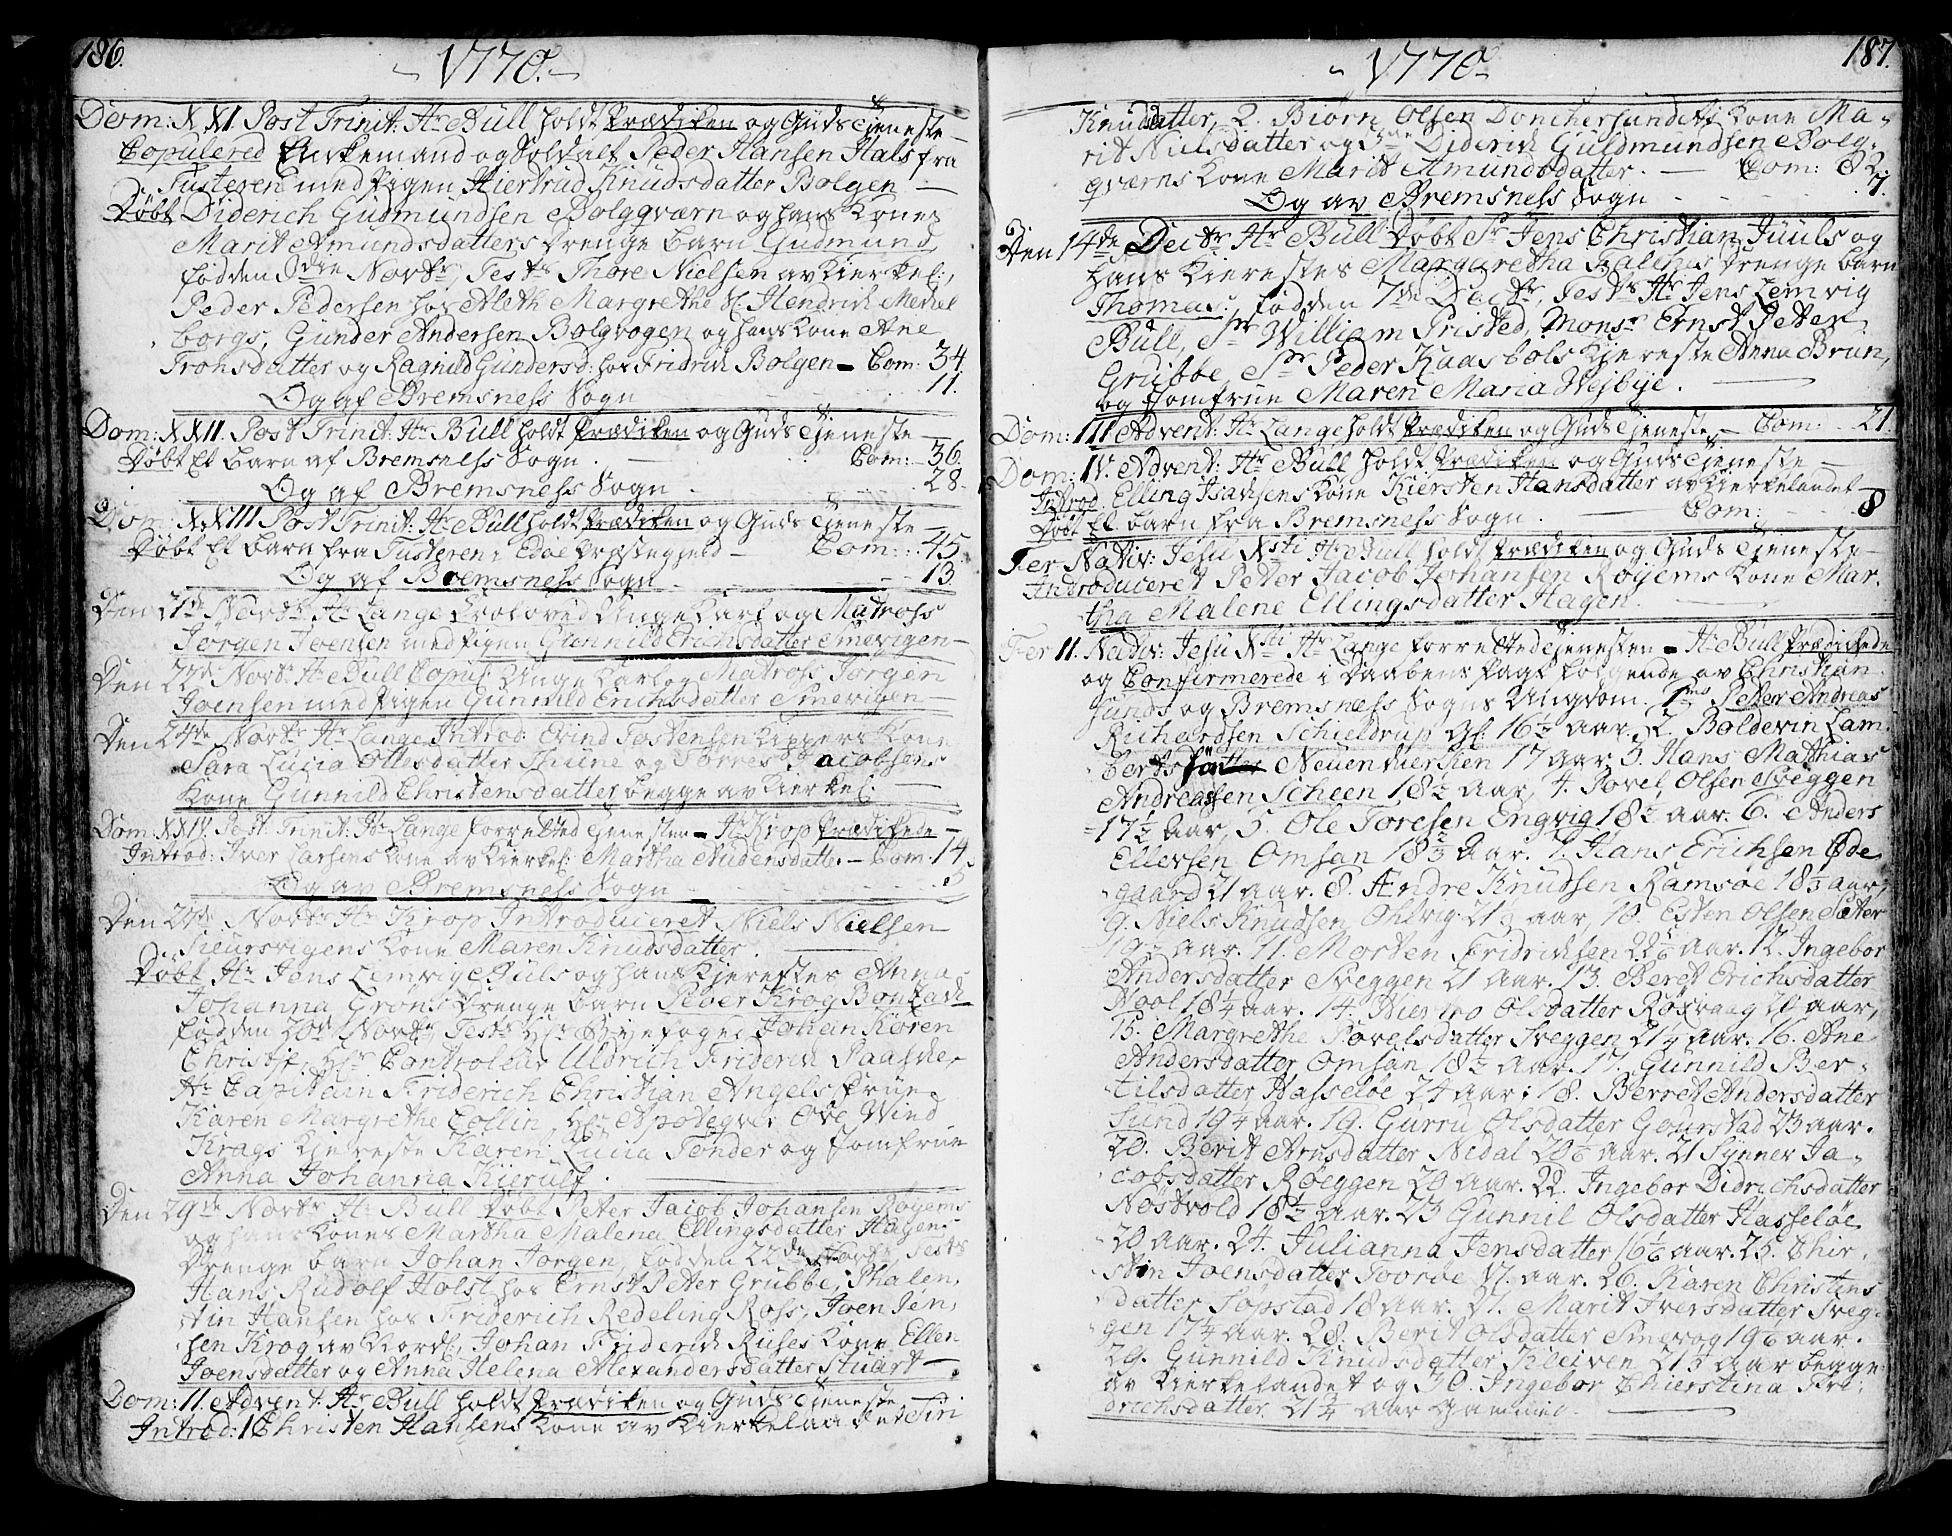 186.
1770.
Dom: XXI. Post Trinit: Hr Bull holdt Prædiken og Guds Tieneste
Copulered Enkemand og Soldat Peder Hansen Hals fra
Tusteren med Pigen Hiertrud Knudsdatter Bolgen
Døbt Diderich Gudmundsen Bolgqværn og hans Kones
Marit Amundsdatters Drenge Barn Gudmund
fød den Novbr, Test: Thore Nielsen av Kierkel:,
Peder Pedersen hos Aleth Margrethe Hendrich Meckel
borgs, Gunder Andersen Bolgvogen og hans Kone Ane
Tronsdatter og Ragnild Gundersd: hos Fridrich Bolgen - Com: 34
Og af Bremsness Sogn 11.
Dom: XXII. Post Trinit: Hr Bull holdt Prædiken og Guds Tieneste
Døbt Et Barn af Bremsness Sogn. Com: 36
Og af Bremsness Sogn 28
Dom: XXIII Post Trinit: Hr Bull holdt Prædiken og Guds Tieneste
Døbt Et Barn fra Tusteren i Edøe Præstegield - Com: 45.
Og af Bremsness Sogn 13
Den Novbr Hr Lange Trolovid Unge Karl og Matross
Jørgen Joensen med Pigen Gunnild Erichsdatter Smevigen
Den 22de Novbr Hr Bull Copul: Unge Karl og Matross Jørgen
Joensen med Pigen Gunnild Erichsdatter Smevigen
Den 24de Novbr Hr Lange Introd: Evind Tostensen Kippers Kone
Sara Lucia Ottosdatter Thune og Torres Jacobsens
Kone Gunnild Christensdatter begge av Kierkel:
Dom: XXIV. Post: Trinit: Hr Lange forretted Tienesten - Hr Krop Prædikede
Introd: Iver Larsens Kone av Kierkel: Martha Audensdatt: - Com: 14.
Og av Bremsness Sogn 5
Den 27de Novbr Hr Krop Introduceret Niels Nielsen
Kone Maren Knudsdatter.
Døbt Hr Jens Lemvig Buls og hans Kierestes Anna
Johanna Grøns Drenge Barn Peder Krog
fød den 20de Novbr Test: Hr Byefoged Johan Koren
Christ:, Hr Controleur Uldrich Friderich Paaske,
Hr Capitain Friderich Christian Angels Frue
Karen Margrethe Collin, Hr Apoteqver Ove Wind
Krags Kiereste Karen Lucia Tønder og Jomfrue
Anna Johanna Kierulf.
Den 29de Novbr Hr Bull Døbt Peter Jacob Johansen Røyems
og hans Kones Martha Malena Ellingsdatter Hagens
Drenge Barn Johan Jørgen, fød den 22de Novbr, Test:
Hans Rudolf Holst hos Ernst Peter Grubbe, Phalen,
tin Hansen hos Friderich Redeling Ross, Joen Jen,
sen Krog av Nordl:, Johan Friderich Ruses Kone Ellen
Joensdatter og Anna Helena Alexandersdatter Stuart
Dom: II. Advent: Hr Bull holdt Prædiken og Guds Tieneste
Introd: 1 Christen Hansens Kone av Kierkelandet Siri
187.
1770
Knudsdatter, 2. Biørn Olsen Donchersundets Kone Ma-
rit Nielsdatter og Diderich Guldmundsen Bolg-
qværns Kone Marit Amundsdatter. - Com: 82.
Og av Bremsness Sogn 7.
Den 14de Decbr Hr Bull Døbt Sr Jens Christian Juuls og
hans Kierestes Margaretha Drenge Barn
Thomas, fød den 7de Decbr, Test: Hr Jens Lemvig
Bull, Sr William Pristed, Monsr Ernst Peter
Grubbe, Sr Peder Kaasbøls Kiereste Anna Brun,
og Jomfrue Maren Maria Wejbye.
Dom: III Advent: Hr Lange holdt Prædiken og Guds Tieneste - Com: 21.
Dom: IV. Advent: Hr Bull holdt Prædiken og Guds Tieneste
Introd: Elling Isachsens Kone Kiersten Hansdatter av Kierkelandet
Døbt Et Barn fra Bremsness Sogn. Com: 8
Fer Nativ: Jesu Xsti Hr Bull holdt Prædiken og Guds Tieneste
Introduceret Peter Jacob Johansen Røyems Kone Mar-
tha Malene Ellingsdatter Hagen.
Fer II. Nativ: Jesu Xsti Hr Lange forretted Tienesten - Hr Bull Prædikede
og Confirmerede i Daabens Pagt følgende av Christian
sunds og Bremsness Sogns Ungdom. 1mo Peter Andreas
Richardsen Schieldrup Gl: 16½ Aar, 2. Boldevin Lam-
berts Neuenkierken 17 Aar, 3. Hans Mathias
Andreassen Scheen 18½ Aar, 4. Povel Olsen Sveggen
17½ Aar, 5. Ole Toresen Engvig 18½ Aar. 6. Anders
Ellevsen Omsan 18½ Aar. 7. Hans Erichsen Øde
gaard 21 Aar. 8. Andre Knudsen Ramsøe 18½ Aar,
9. Niels Knudsen Ohlvig 21½ Aar, 10. Esten Olsen Sæter
19½ Aar. 11. Morten Fridrichsen Aar. 12. Ingebor
Andersdatter Sveggen 21 Aar. 13. Beret Erichsdatter
Vool 18¼ Aar. 14. Olsdatter Røsvaag 20 Aar,
15. Margrethe Povelsdatter Sveggen 21¼ Aar. 16. Ane
Andersdatter Omsan 18½ Aar. 17. Gunnild Ber-
tilsdatter Hasseløe 24 Aar: 18. Berret Andersdatter
Sund 19¼ Aar. 19. Gurru Olsdatter Gourstad 23 Aar.
20. Berit Arnsdatter Nedal Aar. 21 Synner Ja-
cobsdatter Røeggen 20 Aar. 22. Ingebor Didrichsdatter
Nøstvold 18½ Aar. 23 Gunnil Olsdatter Hasseløe
20 Aar. 24. Julianna Jensdatter Aar. 25. Chir-
stin Joensdatter Aar. 26. Karen Christens
datter Søpstad 18 Aar. 27. Marit Iversdatter Sveg-
gen 17¼ Aar. 28. Berit Olsdatter Smevog Aar.
29. Gunnild Knudsdatter Kleiven 21½ Aar begge
av Kierkelandet og 30. Ingebor Chierstina Fri-
drichsdatter. 21¼ Aar Gammel.